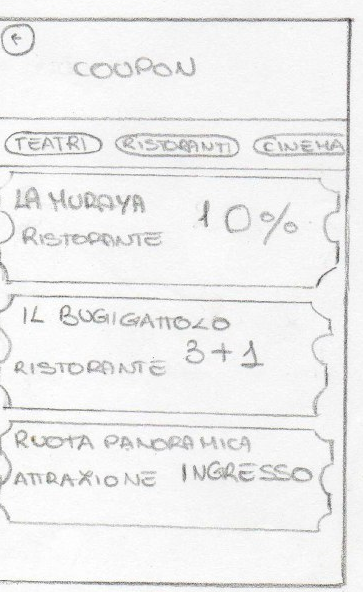 COUPON
TEATRI RISTORANTI CINEMA
LA MURAYA 10%
RISTORANTE
IL BUGIGATTOLO
RISTORANTE 3+1
RUOTA PANORAMICA
ATTRAZIONE INGRESSO